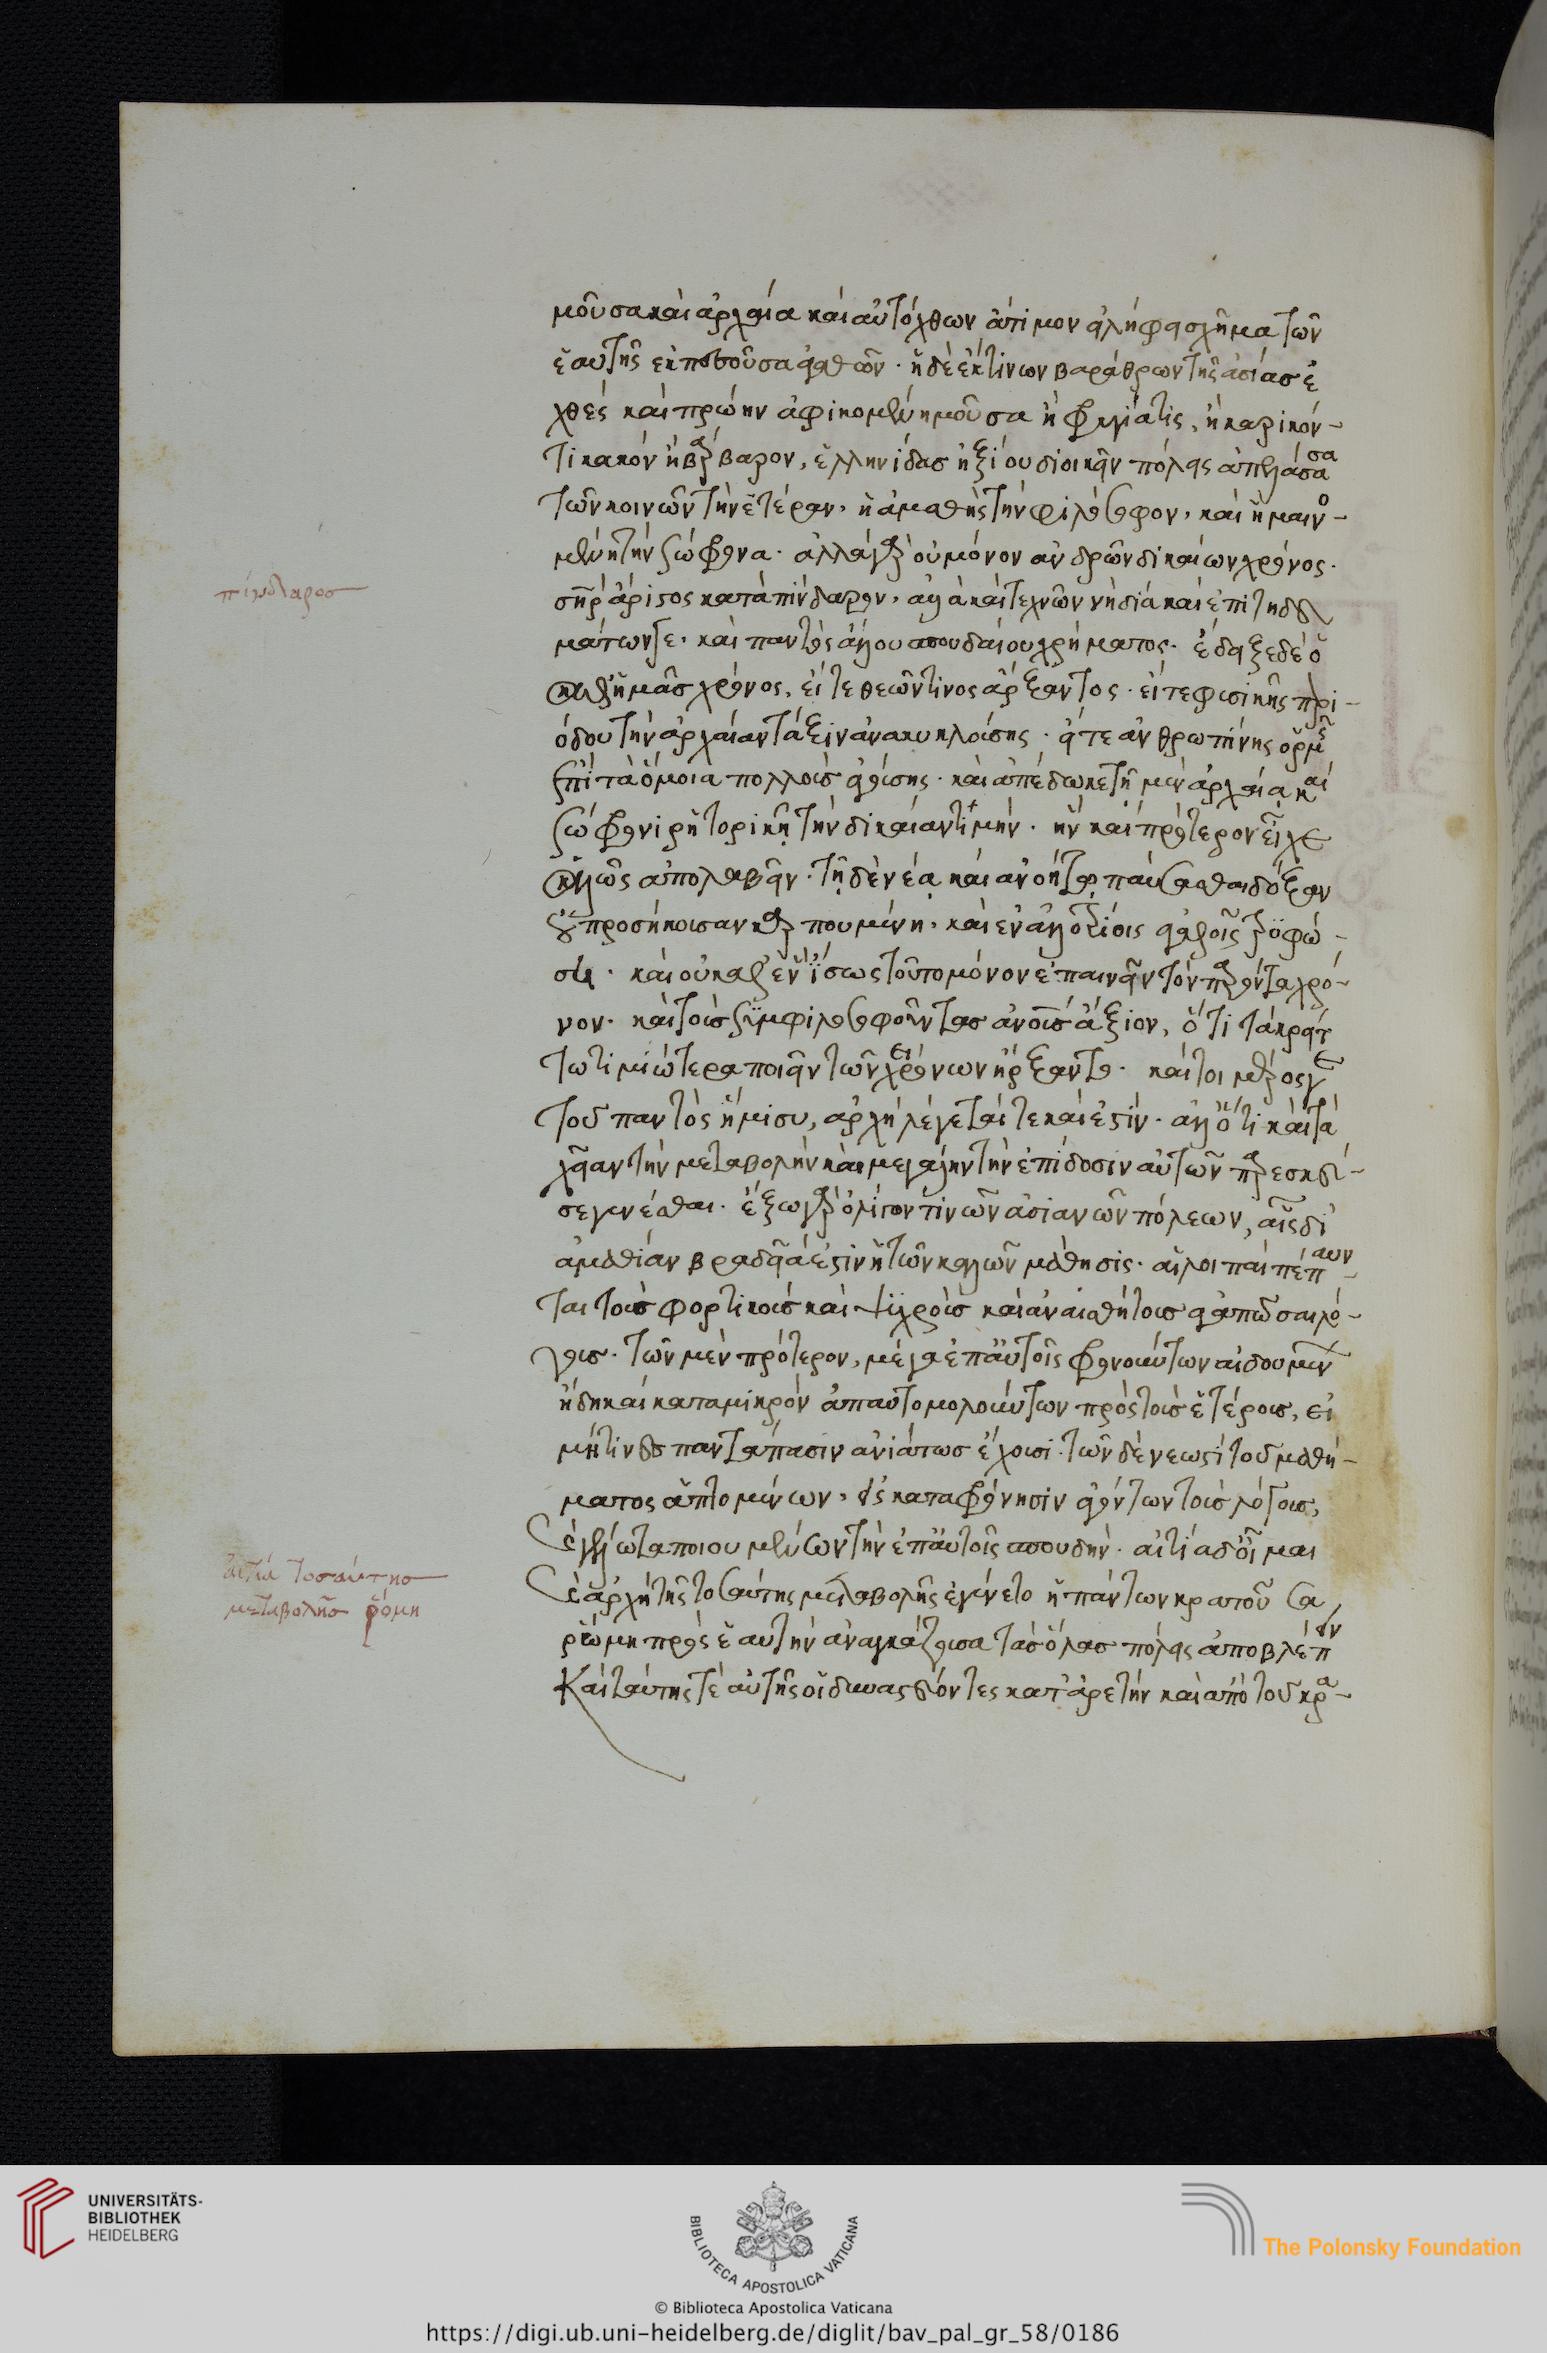 μοῦσα καὶ ἀρχαία καὶ αὐτόχθων ἄτιμον εἰλήφει σχῆμα τῶν
ἑαυτῆς ἐκπεσοῦσα ἀγαθῶν · ἡ δὲ ἐκ τίνων βαράθρων τῆς ἀσίας ἐ
χθὲς καὶ πρώην ἀφικομένη μοῦσα ἢ φρυγία τις, ἢ καρικόν-
τι κακόν ἢ βάρβαρον, ἑλληνίδας ἠξίου διοικεῖν πόλεις ἀπελάσασα
τῶν κοινῶν τὴν ἑτέραν, ἡ ἀμαθὴς τὴν φιλόσοφον, καὶ ἡ μαινο-
μένη τὴν σώφρονα · ἀλλὰ γὰρ οὐ μόνον ἀνδρῶν δικαίων χρόνος ·
σωτὴρ ἄριστος κατὰ πίνδαρον, ἀλλὰ καὶ τεχνῶν νὴ δία καὶ ἐπιτηδευ
μάτων γε, καὶ παντὸς ἄλλου σπουδαίου χρήματος · ἔδειξε δὲ ὁ
καθ' ἡμᾶς χρόνος, εἴτε θεῶν τινος ἄρξαντος · εἴτε φυσικῆς περι-
όδου τὴν ἀρχαίαν τάξιν ἀνακυκλούσης · εἴτε ἀνθρωπίνης ὁρμῆς
ἐπὶ τὰ ὅμοια πολλοὺς ἀγούσης · καὶ ἀπέδωκε τῇ μὲν ἀρχαίᾳ καὶ
σώφρονι ῥητορικῇ τὴν δικαίαν τιμήν · ἣν καὶ πρότερον εἶχε
καλῶς ἀπολαβεῖν · τῇ δὲ νέᾳ καὶ ἀνοήτῳ παύσασθαι δόξαν
οὐ προσήκουσαν καρπουμένη, καὶ ἐν ἀλλοτρίοις ἀγαθοῖς τρυφώ-
ση · καὶ οὐ καθ' ἓν ἴσως τοῦτο μόνον ἐπαινεῖν τὸν παρόντα χρό-
νον · καὶ τοὺς συμφιλοσοφοῦντας ἀνους ἄξιον, ὅτι τὰ κρείτ
τω τιμιώτερα ποιεῖν τῶν χειρόνων ἤρξαντο · καίτοι μέρος γε
τοῦ παντὸς ἥμισυ, ἀρχὴ λέγεταί τε καὶ ἐστίν · ἀλλ' ὅτι καὶ τὰ
χεῖαν τὴν μεταβολὴν καὶ μεγάλην τὴν ἐπίδοσιν αὐτῶν παρεσκεύα-
σε γενέσθαι · ἔξω γὰρ ὀλίγων τινῶν ἀσιανῶν πόλεων, αἷς δι'
ἀμαθίαν βραδεῖά ἐστιν ἡ τῶν καλῶν μάθησις · αἱ λοιπαὶ πέπαυν-
ται τοὺς φορτικοὺς καὶ ψυχροὺς καὶ ἀναισθήτους ἀγαπῶσαι λό-
γους · τῶν μὲν πρότερον, μέγα ἐπ' αὐτοῖς φρονούντων αἰδουμένων
ἤδη καὶ κατὰ μικρὸν ἀπαυτομολούντων πρὸς τοὺς ἑτέρους, εἰ
μή τινες παντάπασιν ἀνιάτως ἔχουσι · τῶν δὲ νεωστὶ τοῦ μαθή-
ματος ἁπτομένων, εἰς καταφρόνησιν ἀγόντων τοὺς λόγους,
καὶ γέλωτα ποιουμένων τὴν ἐπ' αὐτοῖς σπουδήν · αἰτία δ' οἶμαι
καὶ ἀρχὴ τῆς τοσαύτης μεταβολῆς ἐγένετο ἡ πάντων κρατοῦσα
ῥώμη πρὸς ἑαυτὴν ἀναγκάζουσα τὰς ὅλας πόλεις ἀποβλέπειν
καὶ ταύτης τε αὐτῆς οἱ δυναστεύοντες κατ' ἀρετὴν καὶ ἀπὸ τοῦ κρα-
πίνδαρος
αἰτία τοσαύτης
μεταβολῆς ῥώμη
UNIVERSITÄTS-
BIBLIOTHEK
HEIDELBERG
BIBLIOTECA APOSTOLICA VATICANA
The Polonsky Foundation
© Biblioteca Apostolica Vaticana
https://digi.ub.uni-heidelberg.de/diglit/bav_pal_gr_58/0186